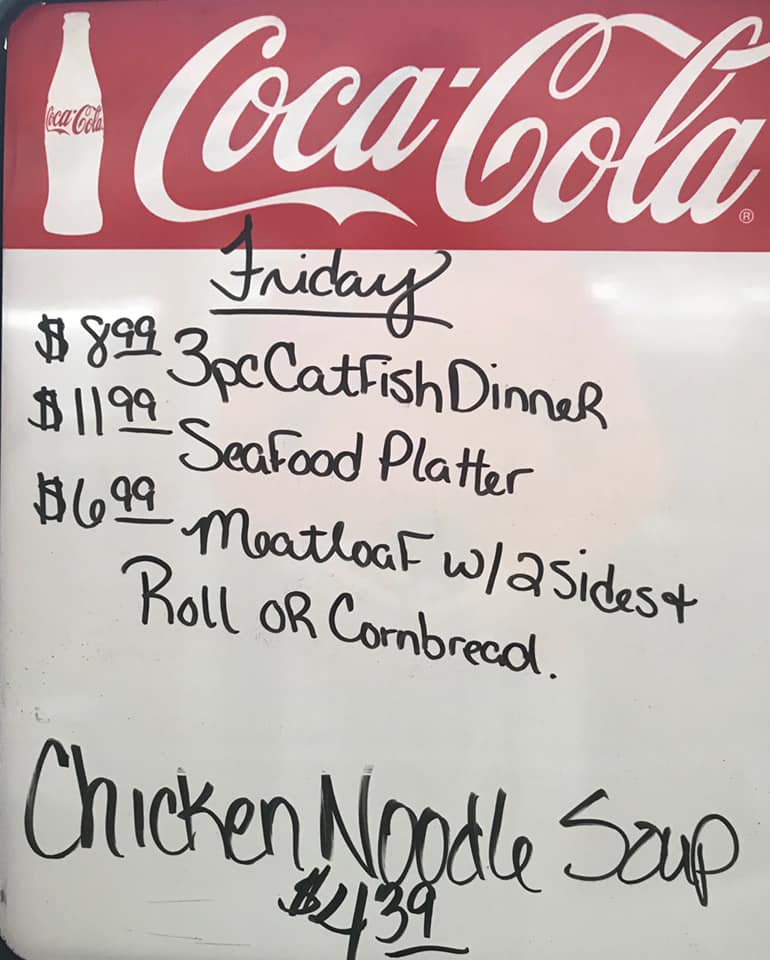 Coca-Cola
Coca-Cola ®
Friday
$ 8.99 3pc CatFish Dinner
$ 11.99 SeaFood Platter
$ 6.99 Meatloaf w/ 2 Sides &
Roll OR Cornbread.
Chicken Noodle Soup
$4.39